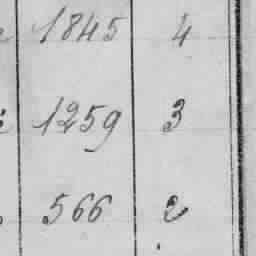 1845 4
1259 3
566 2